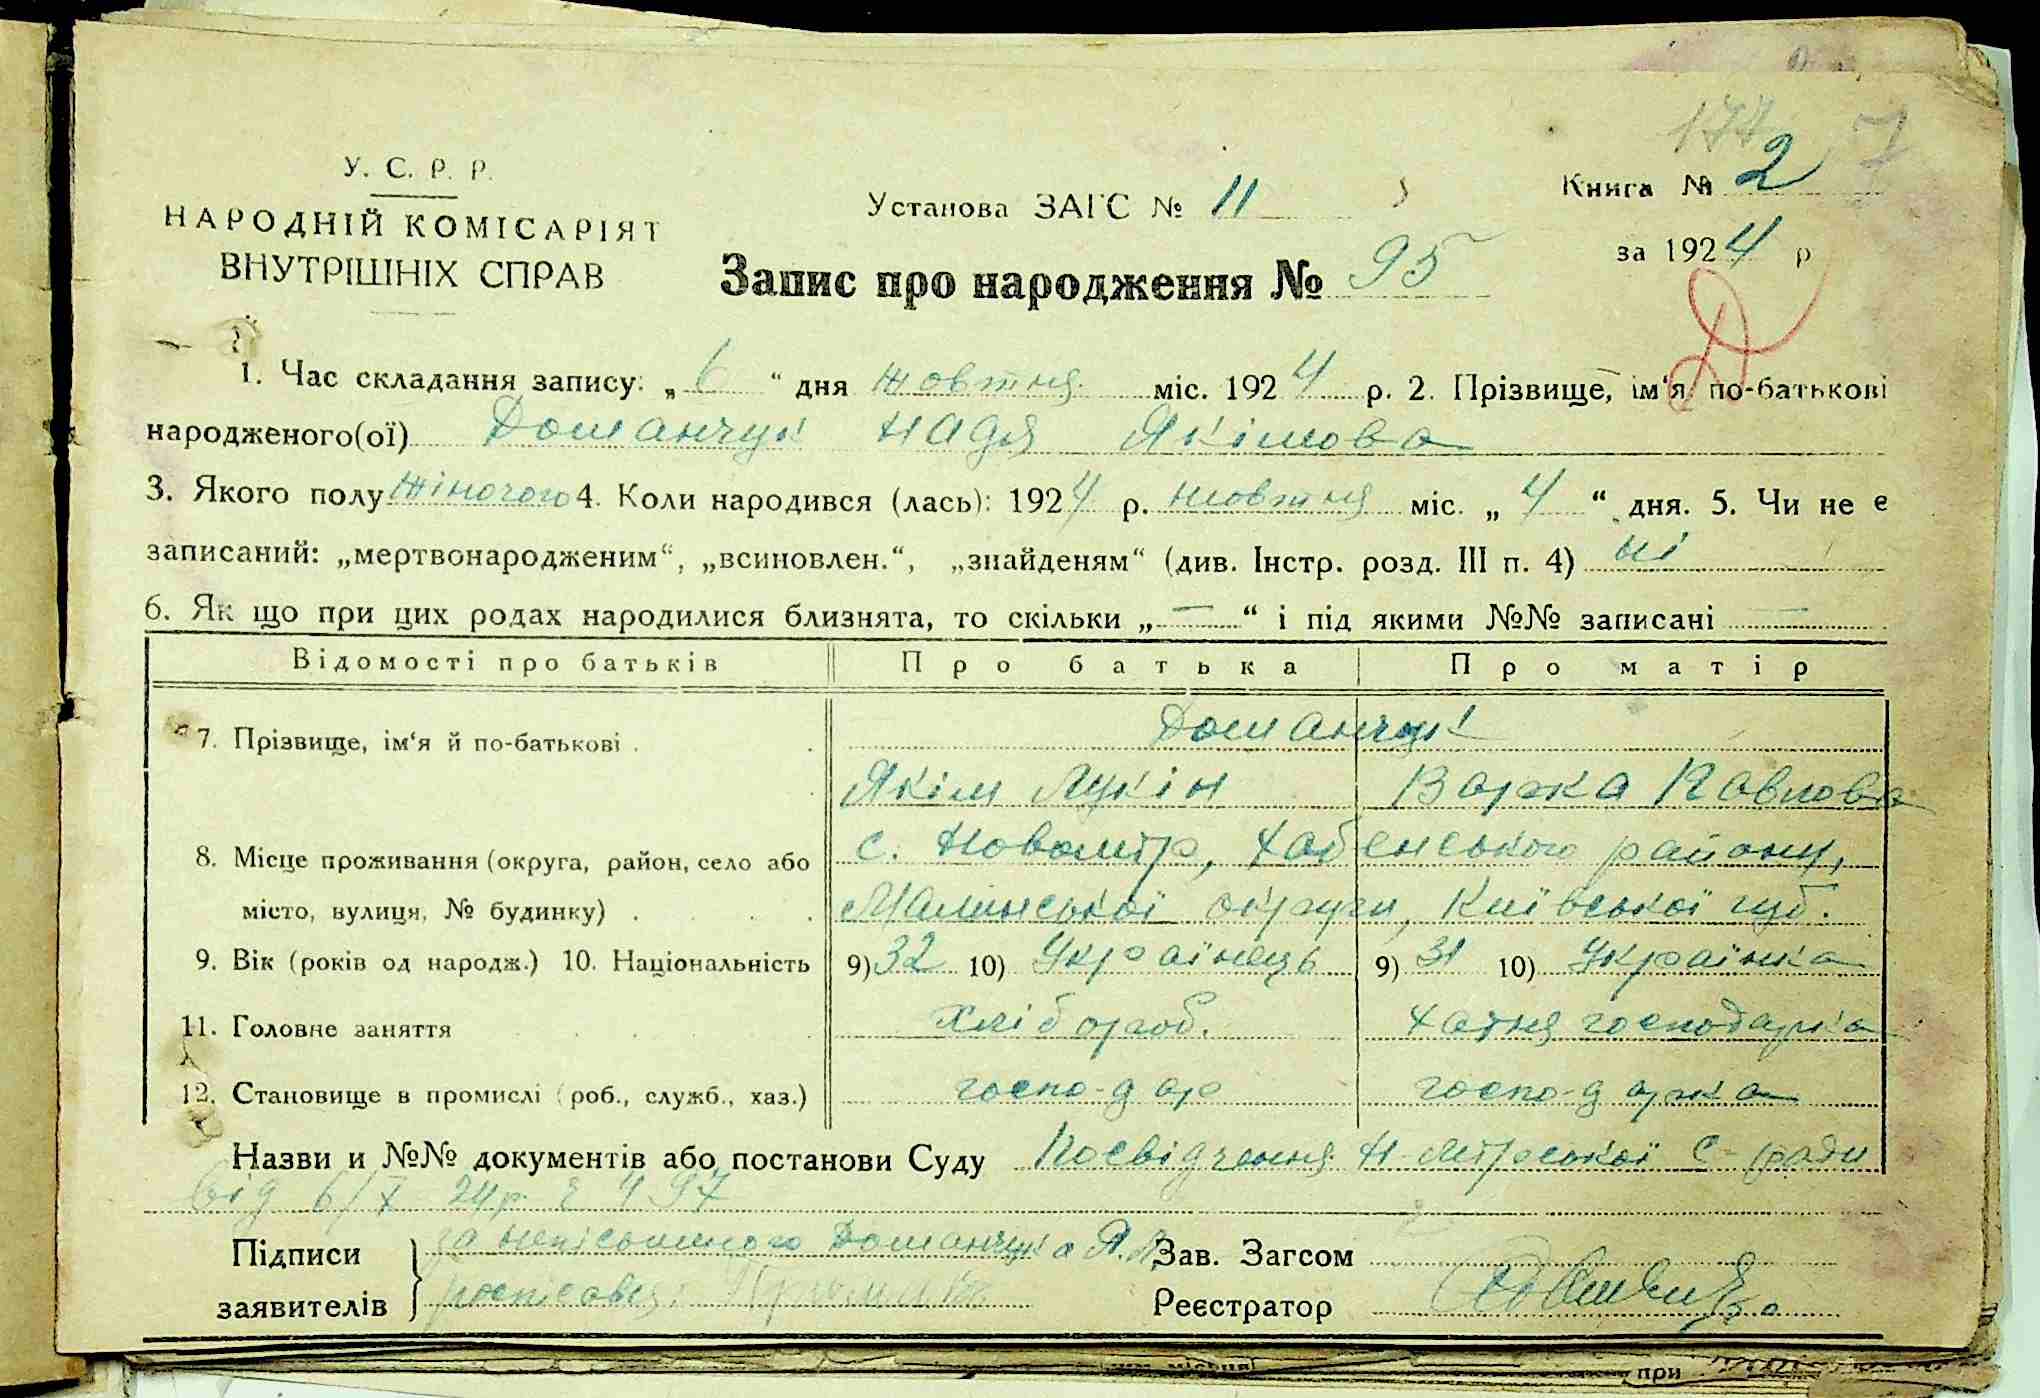 177 2
У. С. Р. Р.
НАРОДНІЙ КОМІСАРІЯТ
ВНУТРІШНІХ СПРАВ
Установа ЗАГС № 11
Книга № 2
за 1924 р
Запис про народження № 95
Д
1. Час складання запису: „ 6 “ дня жовтня міс. 1924 р. 2. Прізвище, ім‘я, по-батькові
народженого(ої) Доманчук Надя Якімова
3. Якого полу жіночого 4. Коли народився (лась): 1924 р. жовтня міс. „ 4 “ дня. 5. Чи не є
записаний: „мертвонародженим“, „всиновлен.“, „знайденям“ (див. Інстр. розд. III п. 4) ні
6. Як що при цих родах народилися близнята, то скільки „ — “ і під якими №№ записані —
Відомості про батьків Про батька Про матір
7. Прізвище, ім‘я й по-батькові . Доманчук
Якім Лукін Варка Павлова
8. Місце проживання (округа, район, село або с. Новомір, Хабенського району,
місто, вулиця, № будинку) . Малинської округи, Київської губ.
9. Вік (років од народж.) 10. Національність 9) 32 10) Українець 9) 31 10) Українка
11. Головне заняття хлібороб. хатня господарка
12. Становище в промислі (роб., служб., хаз.) госпо-дар госпо-дарка
Назви и №№ документів або постанови Суду Посвідчення Н-мірської С-ради
від 6/X 24р. № 497
Підписи за неписьменного Доманчука Я. Л.
заявителів росписався:
Зав. Загсом
Реєстратор
при